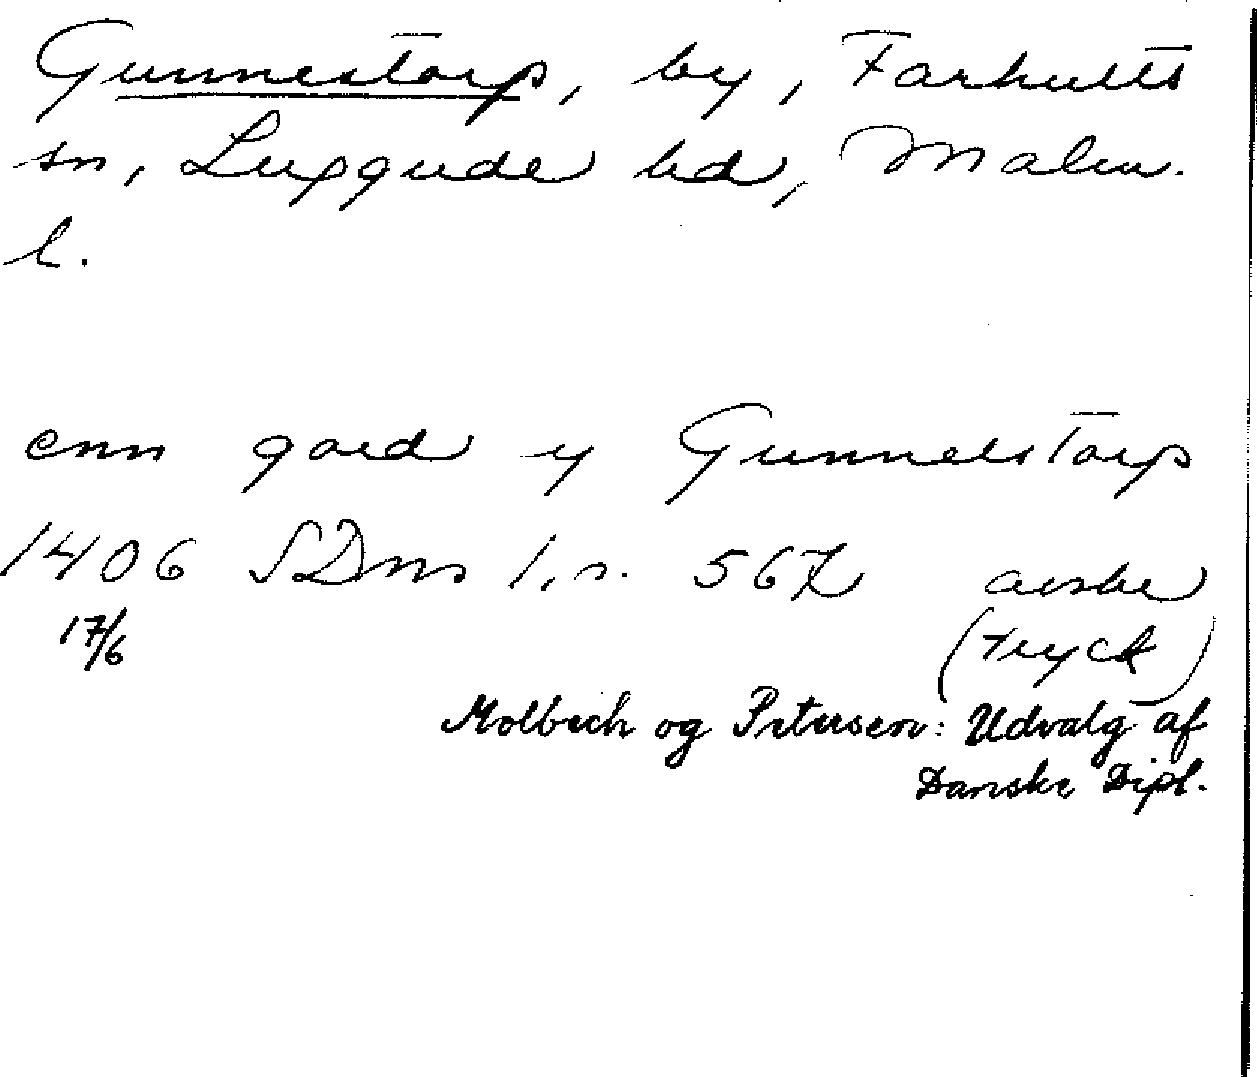 Gunnestorp, by, Farhults
sn, Luggude hd, Malm.
l.
enn gard y Gunnelstorp
1406 SDns 1, s. 567 avskr
17/6 (tryck)
Molbech og Petersen: Udvalg af
Danske Dipl.